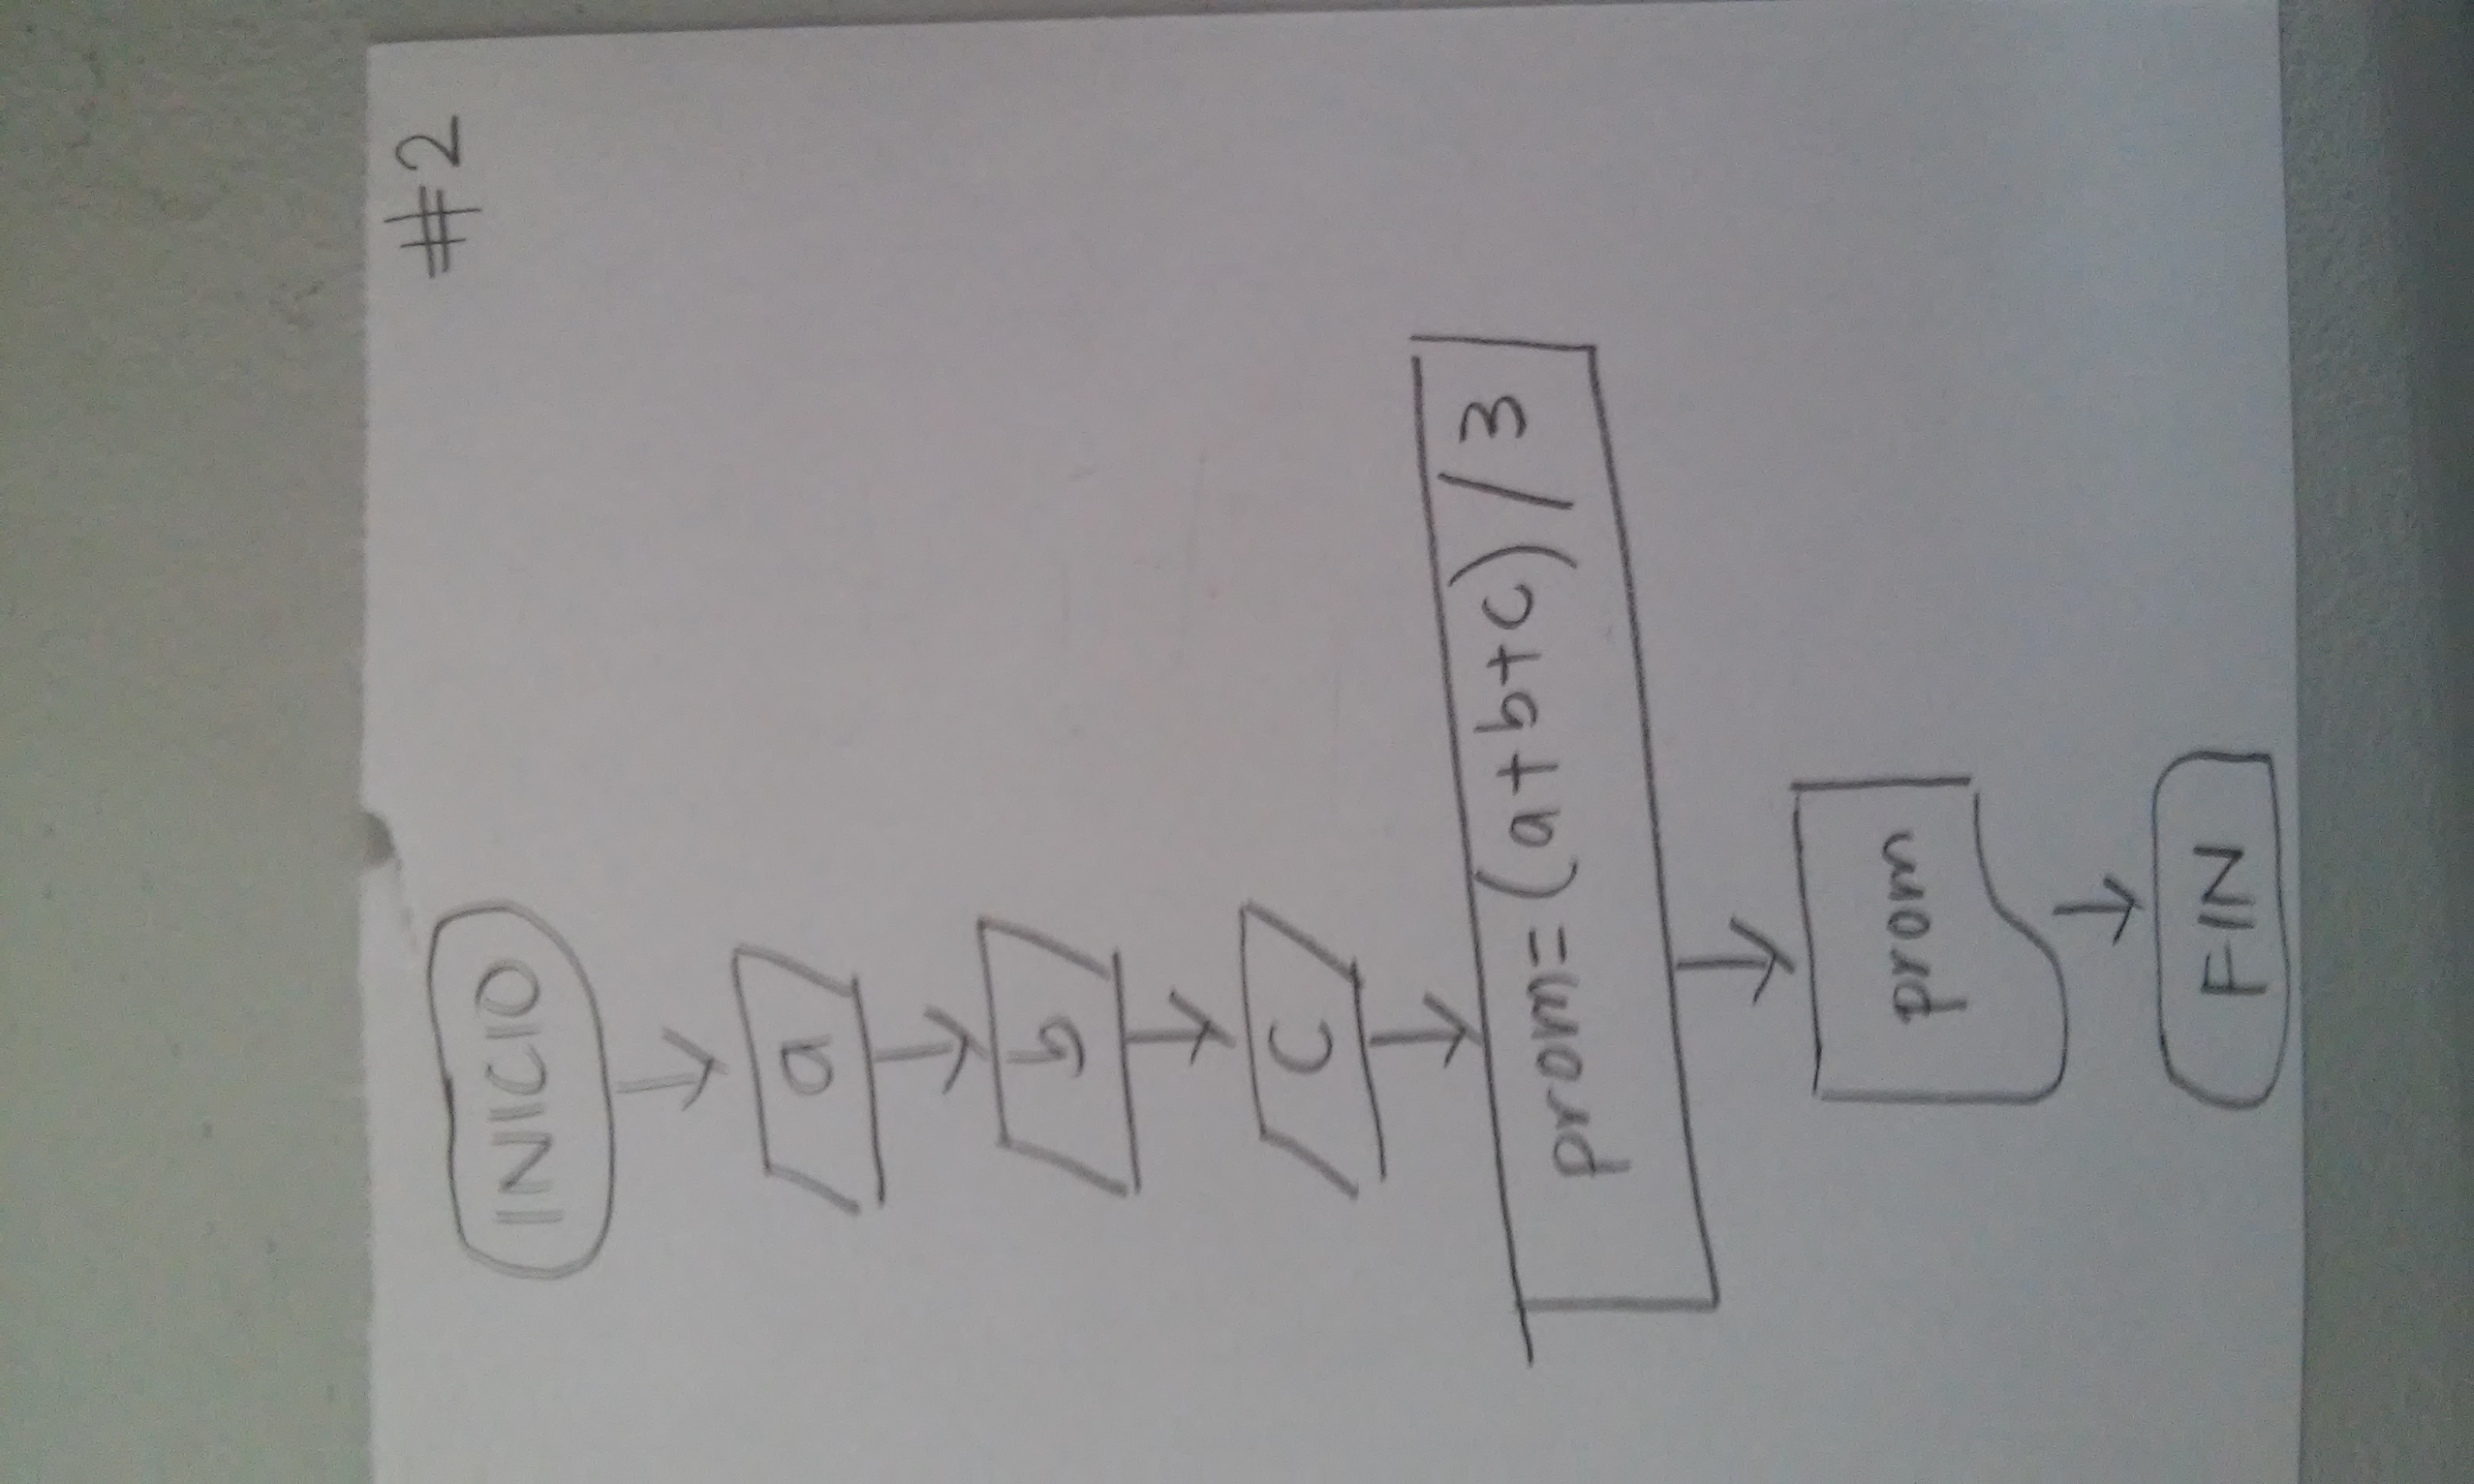 #2
INICIO
a
b
c
prom=(a+b+c)/3
prom
FIN